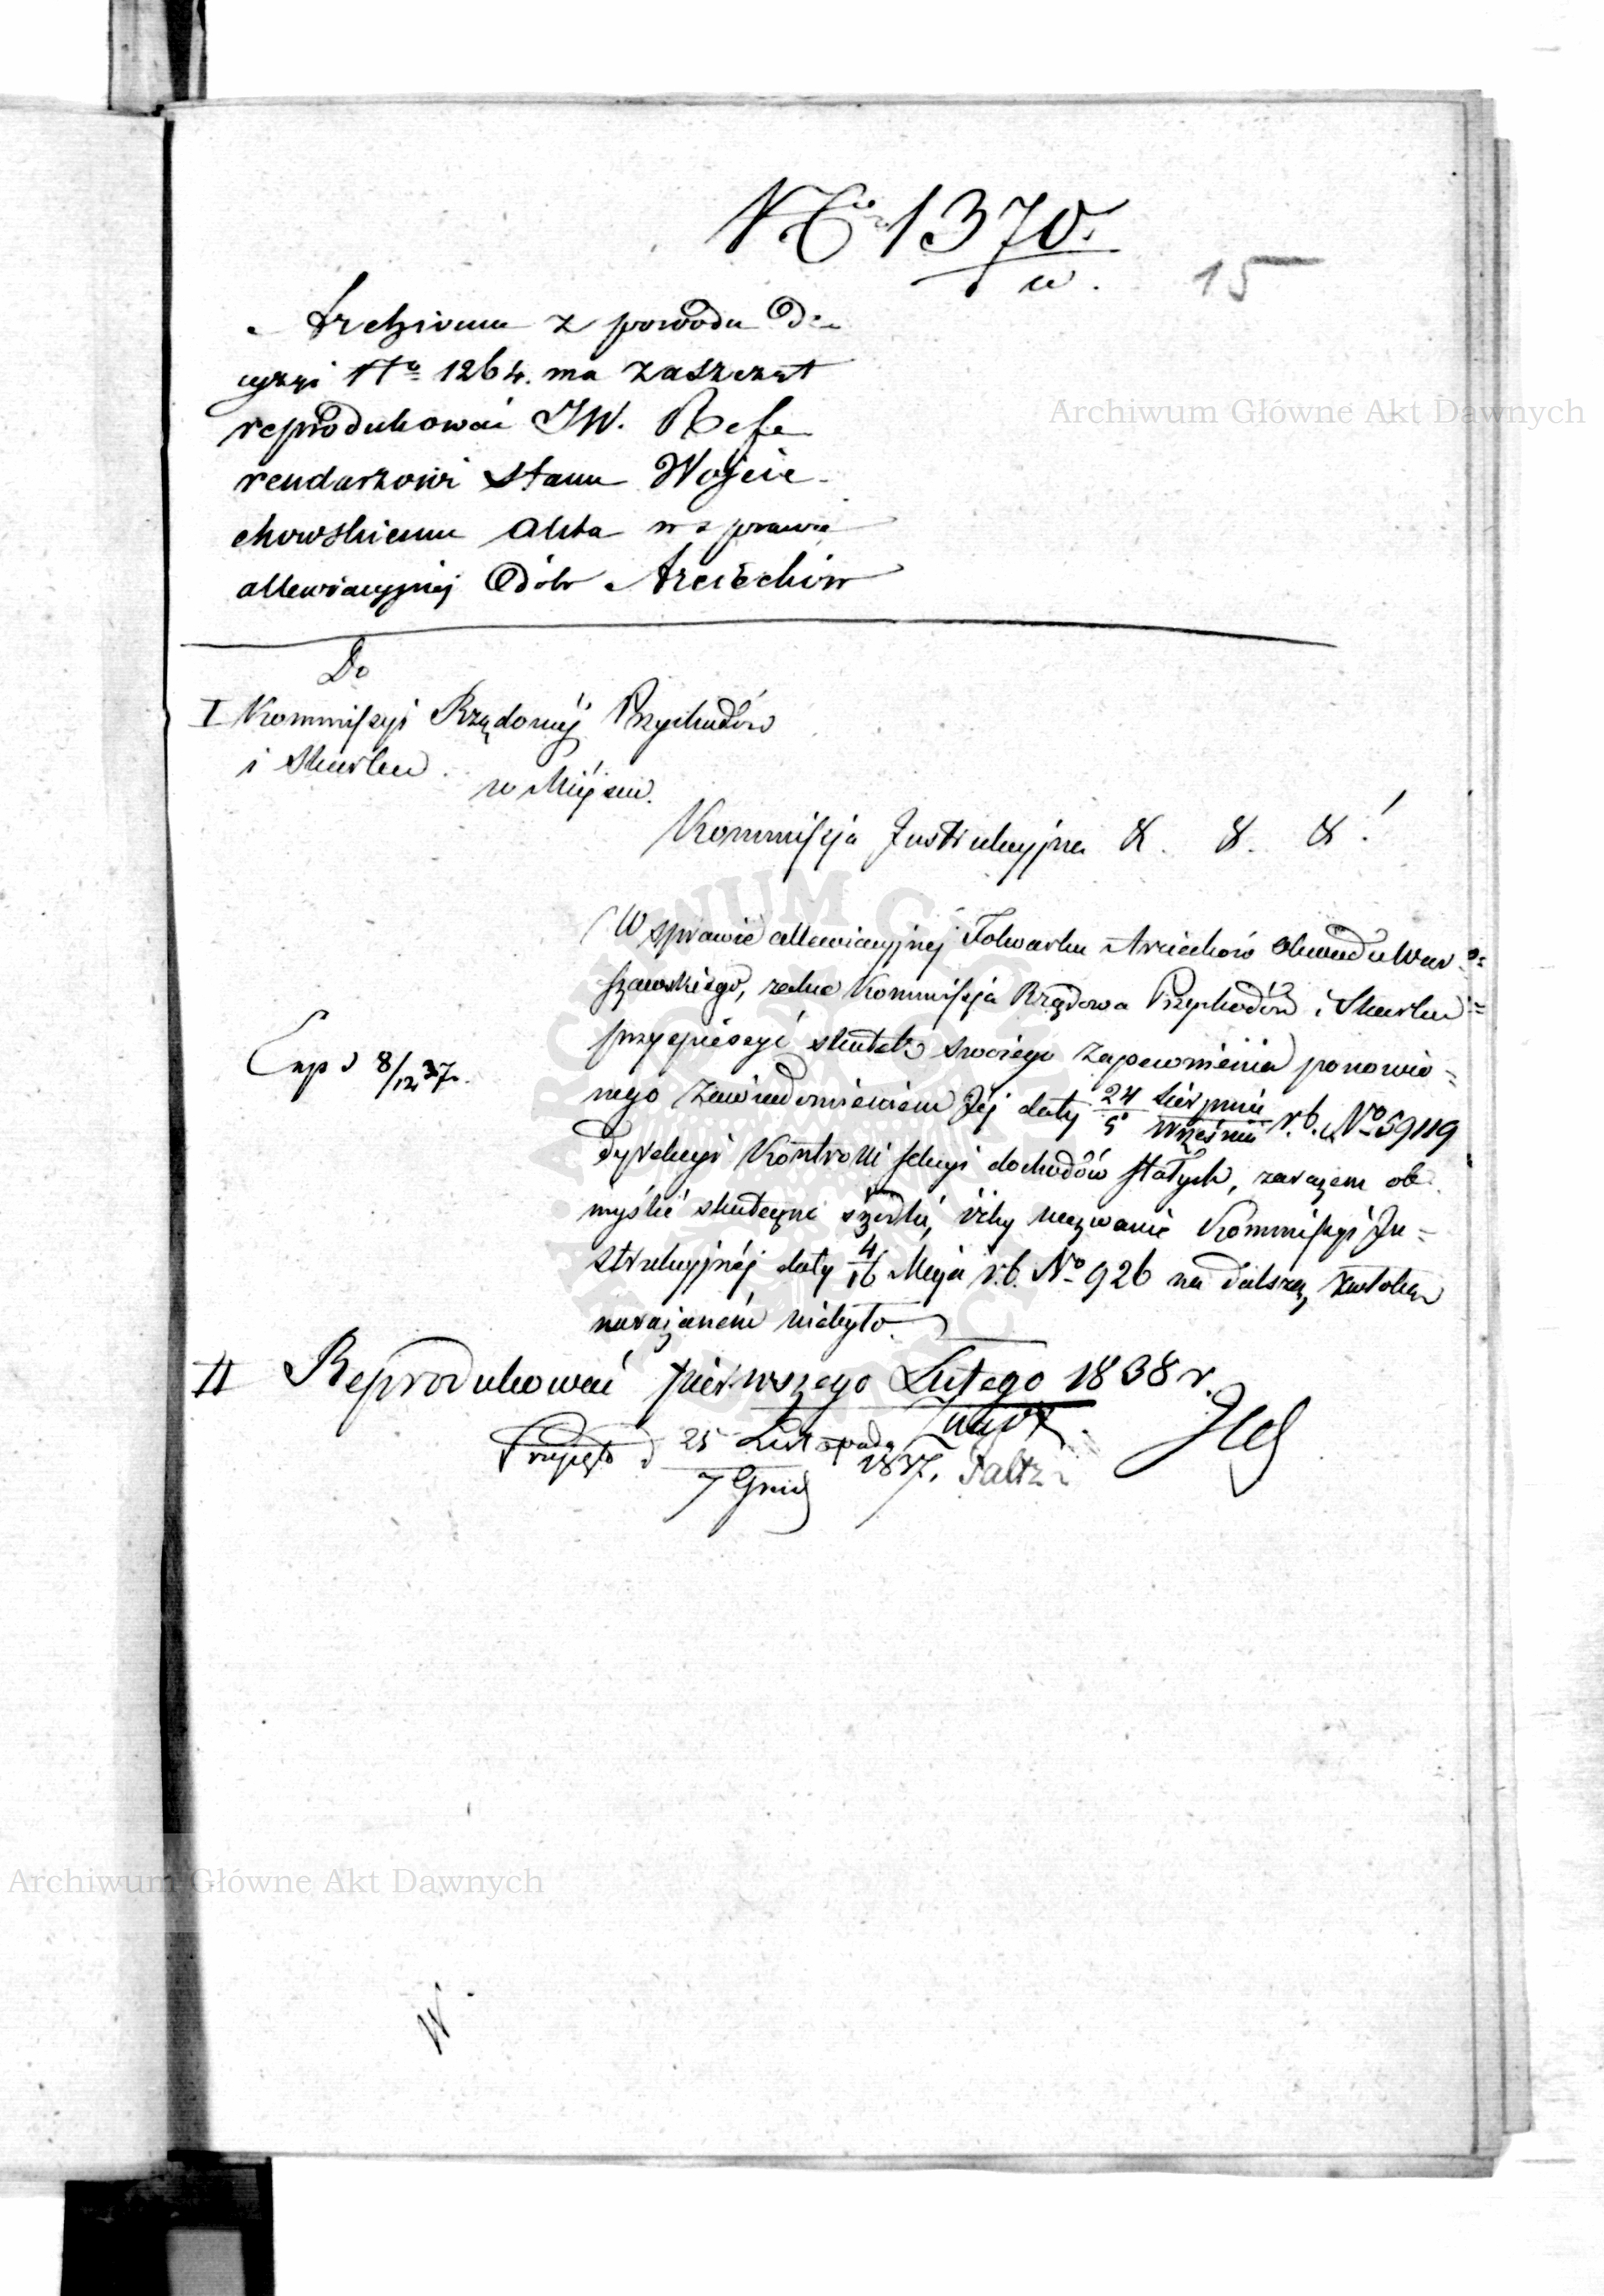 No 1370.
w.
15
Archiwum z powodu De
cyzyi No 1264. ma zaszczyt
reprodukować JW. Refe
rendarzowi Stanu Wojcie
chowskiemu Akta w sprawie
allewiacyjnej Dóbr Arciechów
Do
I Kommissyi Rządowéj Przychodów
i Skarbu
w Miejscu.
Kommissja Instrukcyjna & . & . & .
W sprawie allewiacyjnej Folwarku Arciechów Obwodu War=
szawskiego, zechce Kommissja Rządowa Przychodów i Skarbu
przyspieszyć skutek swoiego zapewnienia ponowio=
nego zawiadomieniem Jéj daty 24 Sierpnia / 5 Września r. b. No 59119
Exp d 8/12 37.
Dyrekcyi Kontrolli Sekcyi dochodów stałych, zarazem ob
myślić skuteczne środki, iżby wezwanie Kommissyi In=
strukcyjnéj daty 4/16 Maja r. b. No 926 na dalszą zwłokę
narażaném niebyło.
II Reprodukować pierwszego Lutego 1838 r.
Przyięto d 25 Listopada / 7 Grud 1837.
W.
Archiwum Główne Akt Dawnych
Archiwum Główne Akt Dawnych